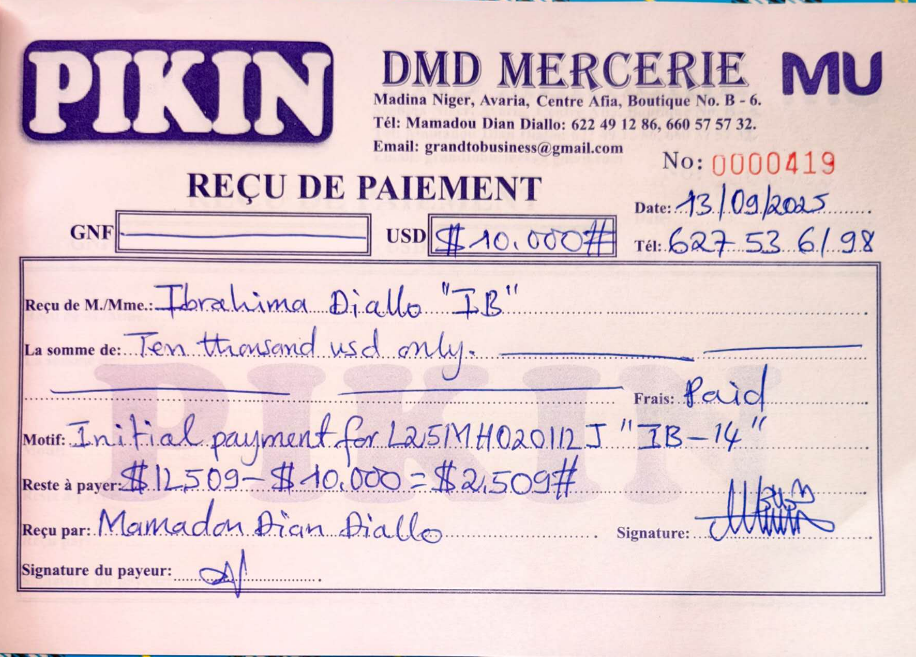 PIKIN
DMD MERCERIE
MU
Madina Niger, Avaria, Centre Afia, Boutique No. B - 6.
Tél: Mamadou Dian Diallo: 622 49 12 86, 660 57 57 32.
Email: grandtobusiness@gmail.com
No: 0000419
REÇU DE PAIEMENT
Date: 13/09/2025
GNF
USD $10.000#
Tél: 627 53 61 98
Reçu de M./Mme.: Ibrahima Diallo "IB"
La somme de: Ten thousand usd only.
Frais: Paid
Motif: Initial payment for L251MH020112J "IB-14"
Reste à payer: $12,509-$10.000=$2,509#
Reçu par: Mamadou Dian Diallo
Signature:
Signature du payeur:
PIKIN